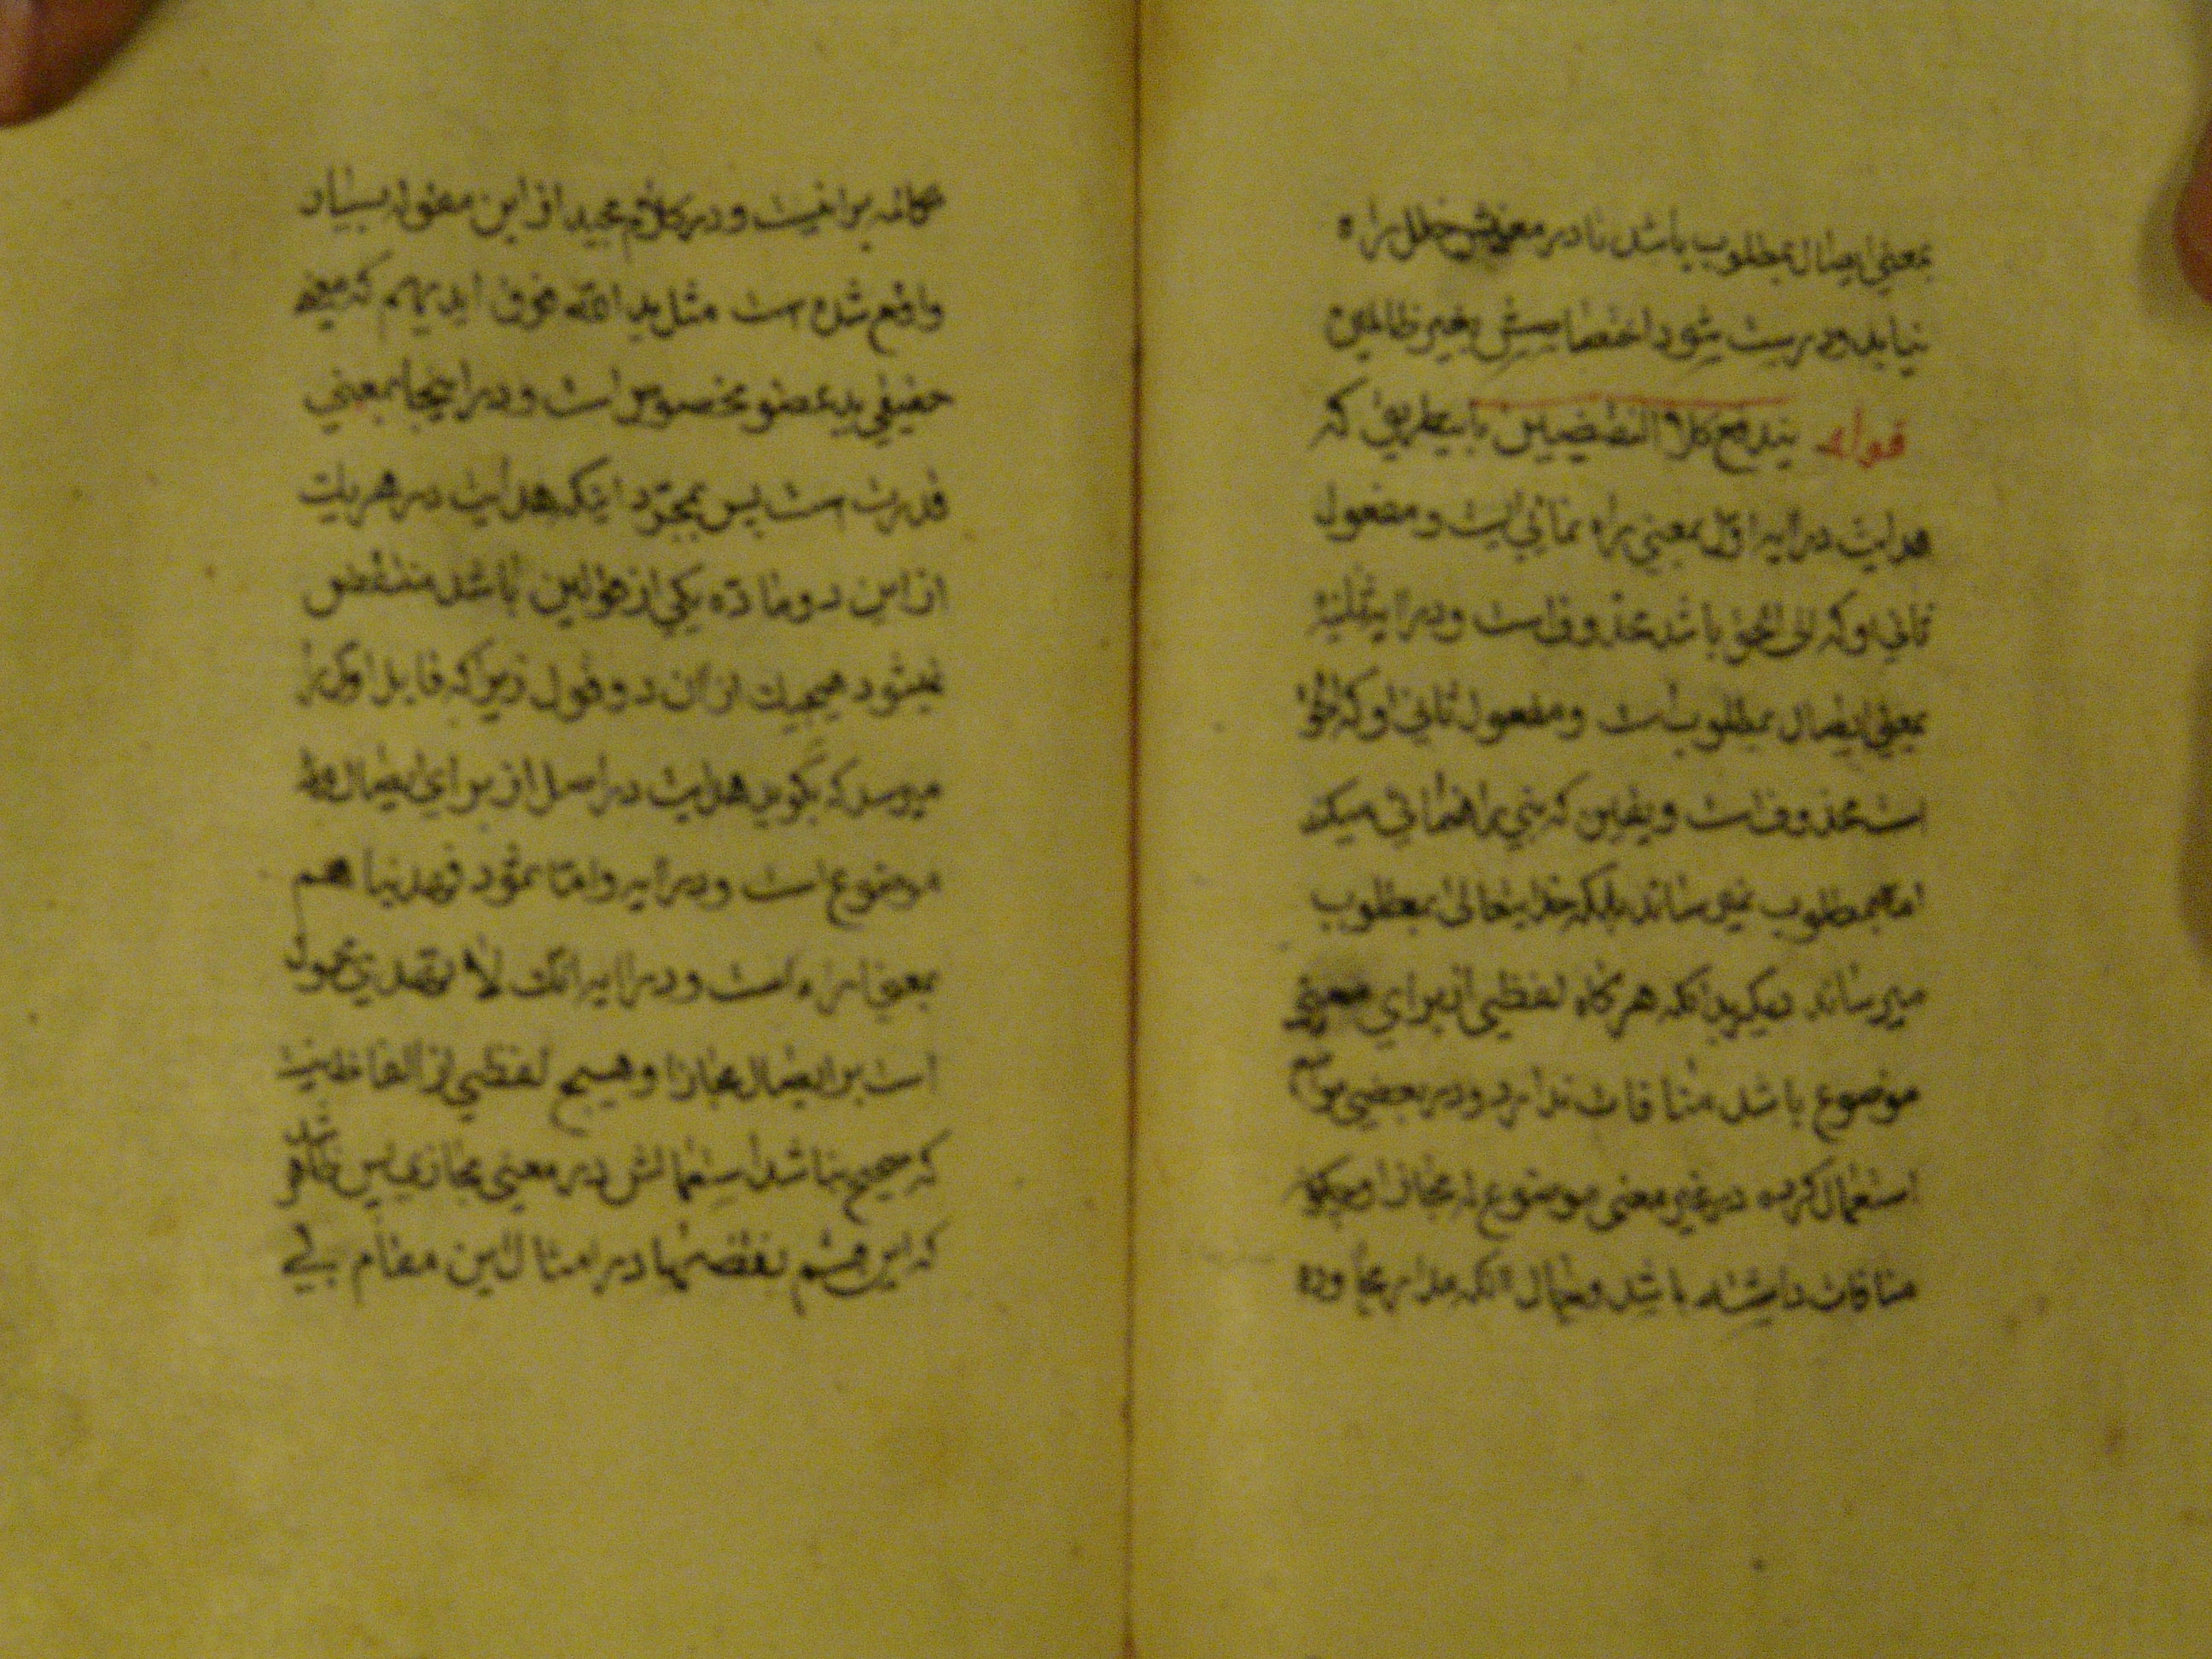 بمعنی ایصال بمطلوب باشد تا در معنیش خلل راه
نیابد و درست شود اختصاصش بغیر ظالمین
قوله یندفع کلا النقیضین باینطریق که
هدایت در آیه اول بمعنی راه نمائی است و مفعول
ثانی او که الی الحق باشد محذوف است و در آیه ثانیه
بمعنی ایصال بمطلوب است و مفعول ثانی او که الحق
است محذوف است و یقین که نبی راهنمائی میکند
اما بمطلوب نمیرساند بلکه خدایتعالی بمطلوب
میرساند دیگر بدانکه هرگاه لفظی از برای معنی
موضوع باشد منافات ندارد و در بعضی مواضع
استعمال کردن در غیر معنی موضوع له مجازا و چگونه
منافات داشته باشد و حال آنکه مدار محاوره
و در کلام مجید از این مقوله بسیار
واقع شده است مثل ید الله فوق ایدیهم که معنی
حقیقی ید عضو مخصوص است و در اینجا بمعنی
قدرت است پس بمجرد اینکه هدایت در هر یک
از این دو ماده یکی از قولین باشد منتقض
نمیشود هیچیک از آن دو قول زیرا که قایل اول را
میرسد که بگوید هدایت در اصل از برای ایصال
موضوع است و در آیه و اما ثمود فهدیناهم
بمعنی راه است و در آیه انک لا تهدی محمول
است بر ایصال مجازا و هیچ لفظی از الفاظ نیست
که صحیح نباشد استعمالش در معنی مجازی پس ظاهر شد
که این قسم نقضها در امثال این مقام